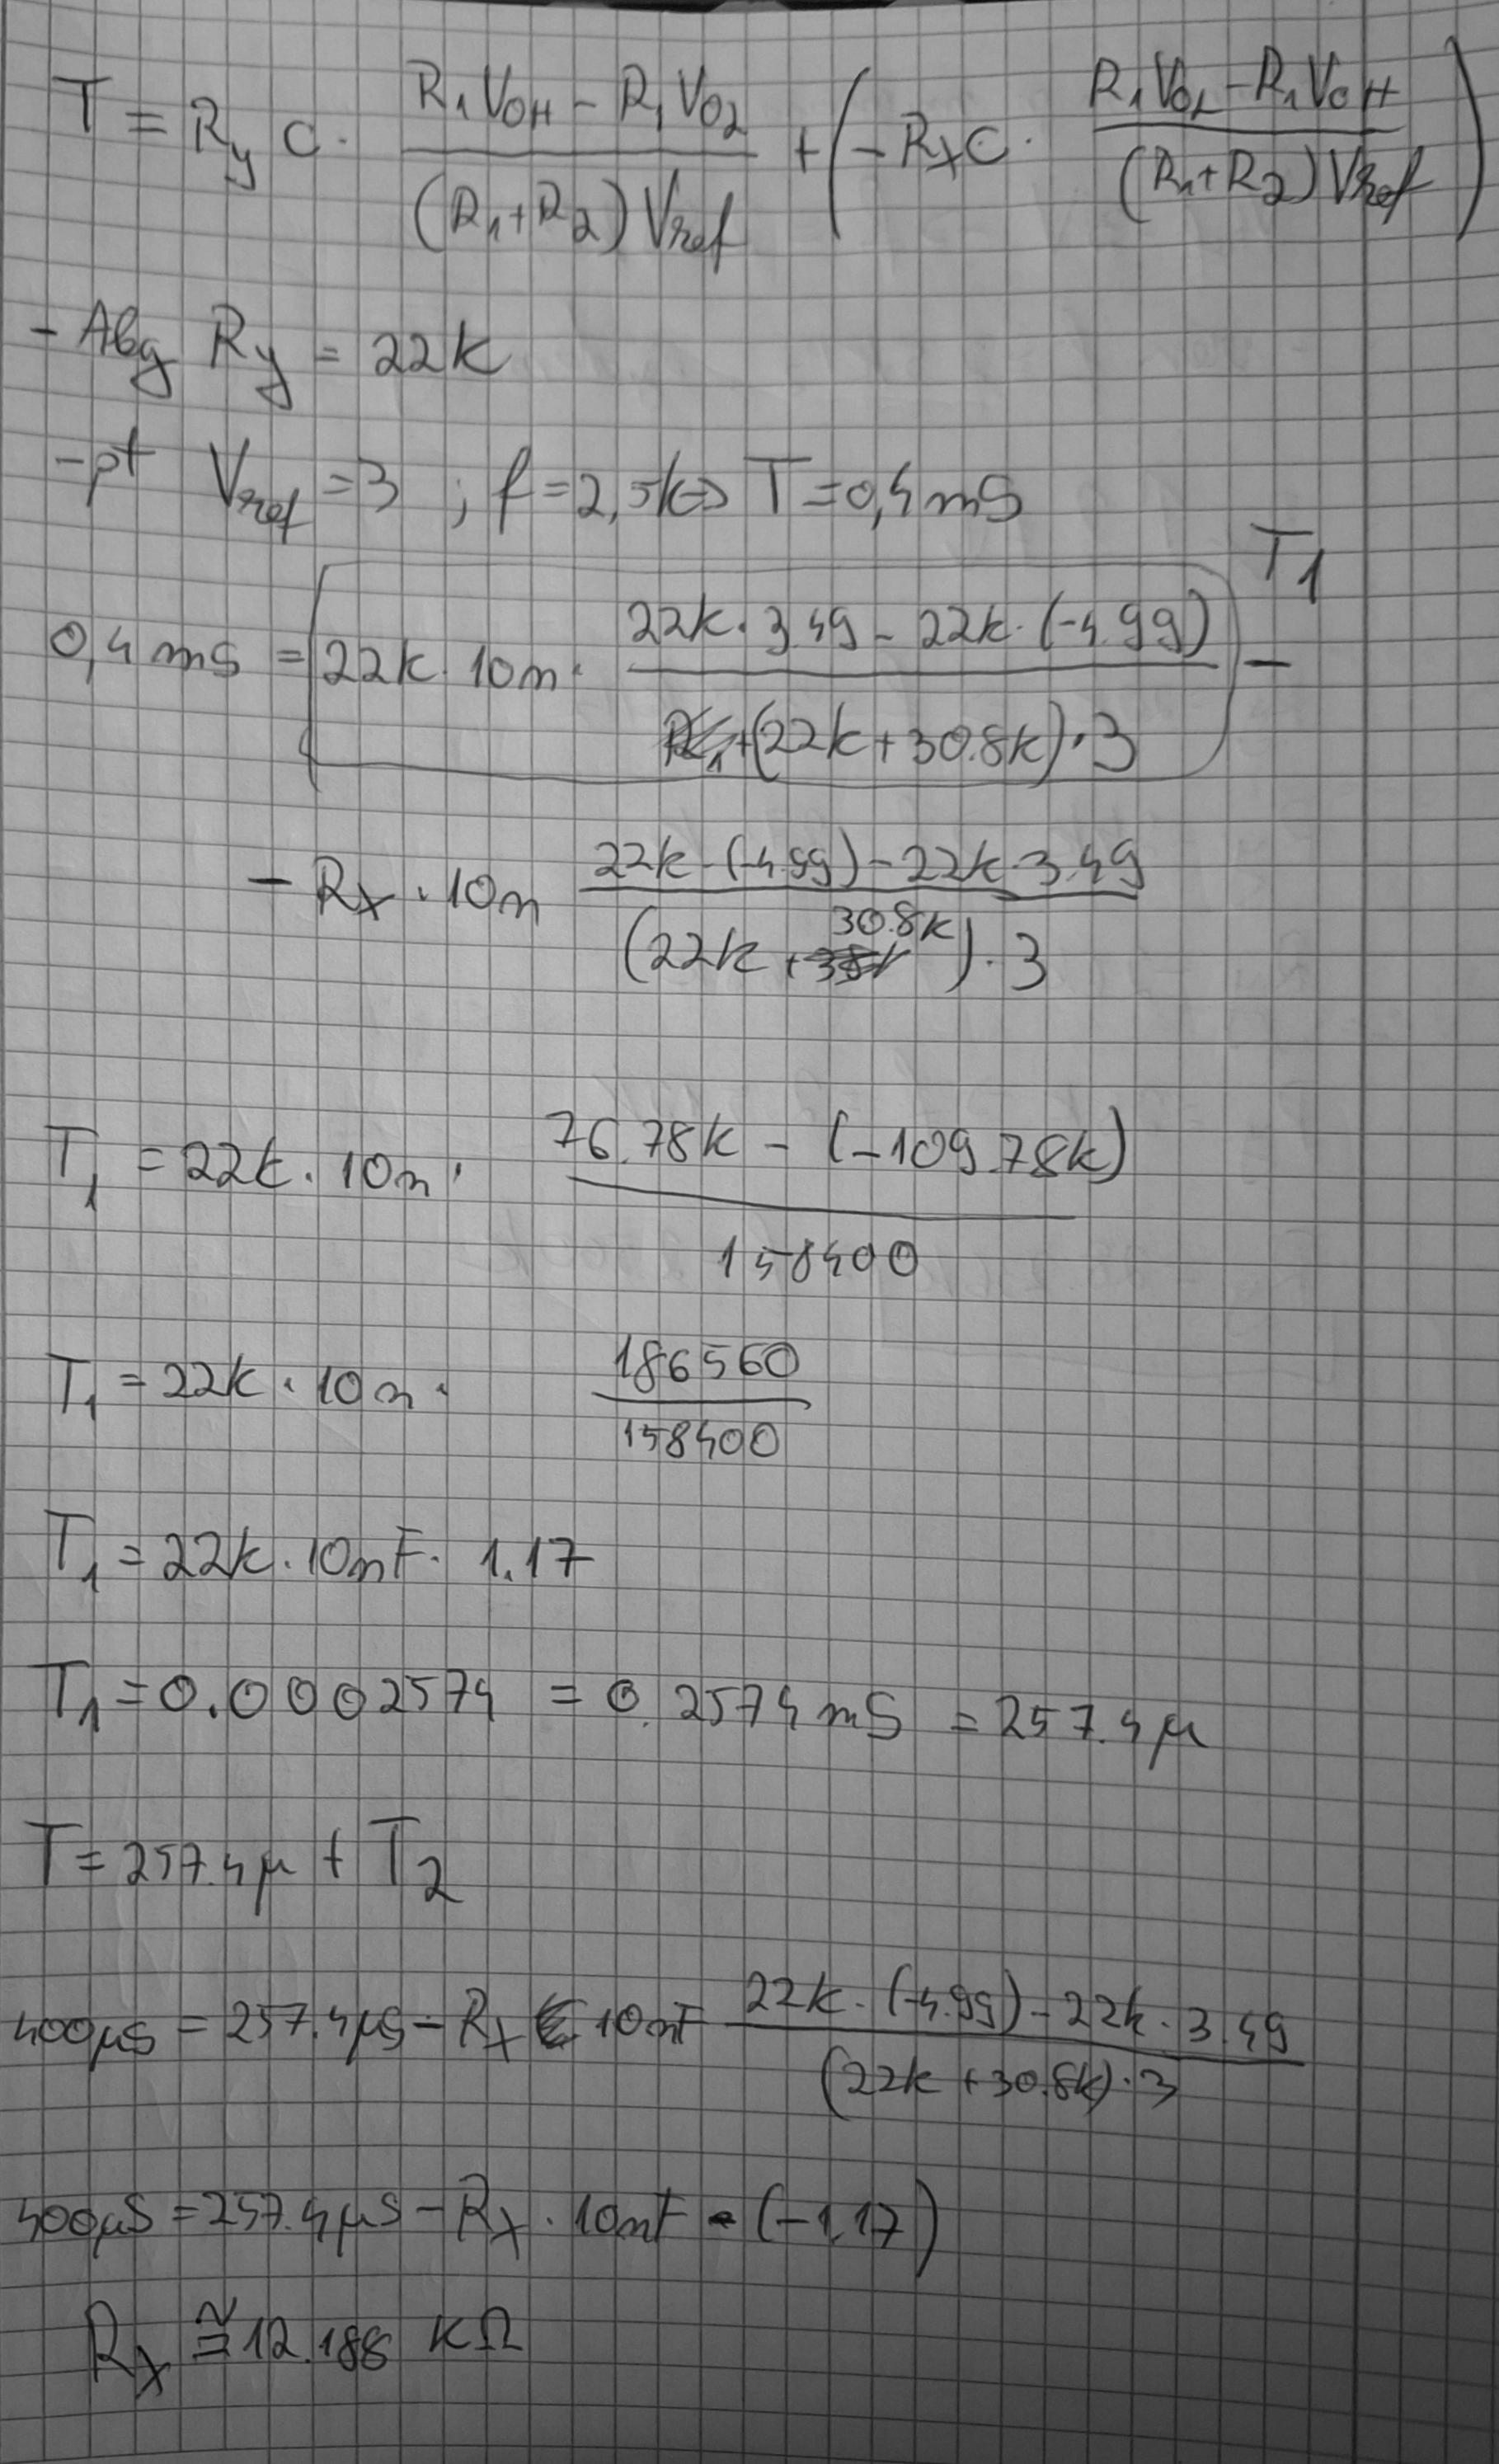 T = Ry C · (R1 VOH - R1 VOL) / ((R1+R2) Vref) + (- Rx C · (R1 VOL - R1 VOH) / ((R1+R2) Vref))
- Alg Ry = 22k
- pt Vref = 3 ; f = 2,5k => T = 0,4 mS
T1
0,4 mS = (22k · 10n · (22k · 3.49 - 22k · (-4.99)) / ((22k + 30.8k) · 3)) -
- Rx · 10n (22k · (-4.99) - 22k · 3.49) / ((22k + 30.8k) · 3)
T1 = 22k · 10n · (76.78k - (-109.78k)) / 158400
T1 = 22k · 10n · 186560 / 158400
T1 = 22k · 10nF · 1.17
T1 = 0.0002574 = 0.2574 mS = 257.4 μ
T = 257.4 μ + T2
400μS = 257.4μS - Rx 10nF (22k · (-4.99) - 22k · 3.49) / ((22k + 30.8k) · 3)
400μS = 257.4μS - Rx · 10nF · (-1.17)
Rx ≅ 12.188 kΩ